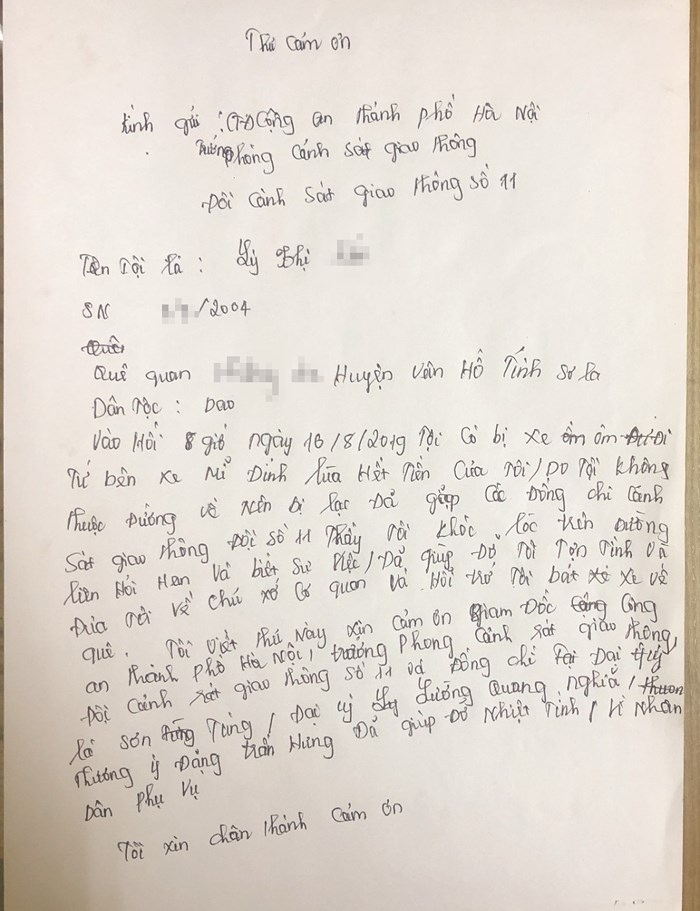 Thư cám ơn
Kính gửi : GĐ Cộng an thành phố Hà Nội
Trưởng phòng Cánh sát giao thông
Đồi cảnh sát giao thông số 11
Tên tội là : Lý Thị
SN /2004
Quê
Quê quan Huyện Vân Hồ Tỉnh Sơ la
Dân tộc : Dao
Vào Hồi 8 giờ ngày 16/8/2019 Tội Có bị xe ồm ôm Đi
Từ bên xe Mĩ Định lừa Hết Tiền Cửa Tôi / Do Tội không
thuộc Đường về nên bị lạc Đả gặp Các Đồng chi Cánh
Sát giao thông Đội số 11 Thấy tôi khóc lóc trên Đường
liên Hỏi Hen Và biết Sư việc / Đả giúp Đở Tôi Tợn Tình và
Đưa Tôi Về chú xớ Cơ quan Và Hồi trở Tôi bát xe xe về
quê. Tôi Viết thứ này xin Cảm ơn giam Đốc Công
an thành phố Hà Nội, trưởng Phong Cảnh sát giao thông,
Đội Cảnh sát giao thông số 11 và Đồng chỉ Tai Đại úy
là sơn Tùng / Đại úy Lương Quang nghiã /
thương ý Đặng trần Hưng Đả giúp Đở Nhiệt Tình / Vì Nhân
Dân phụ Vụ
Tôi xin chân thành Cảm ơn